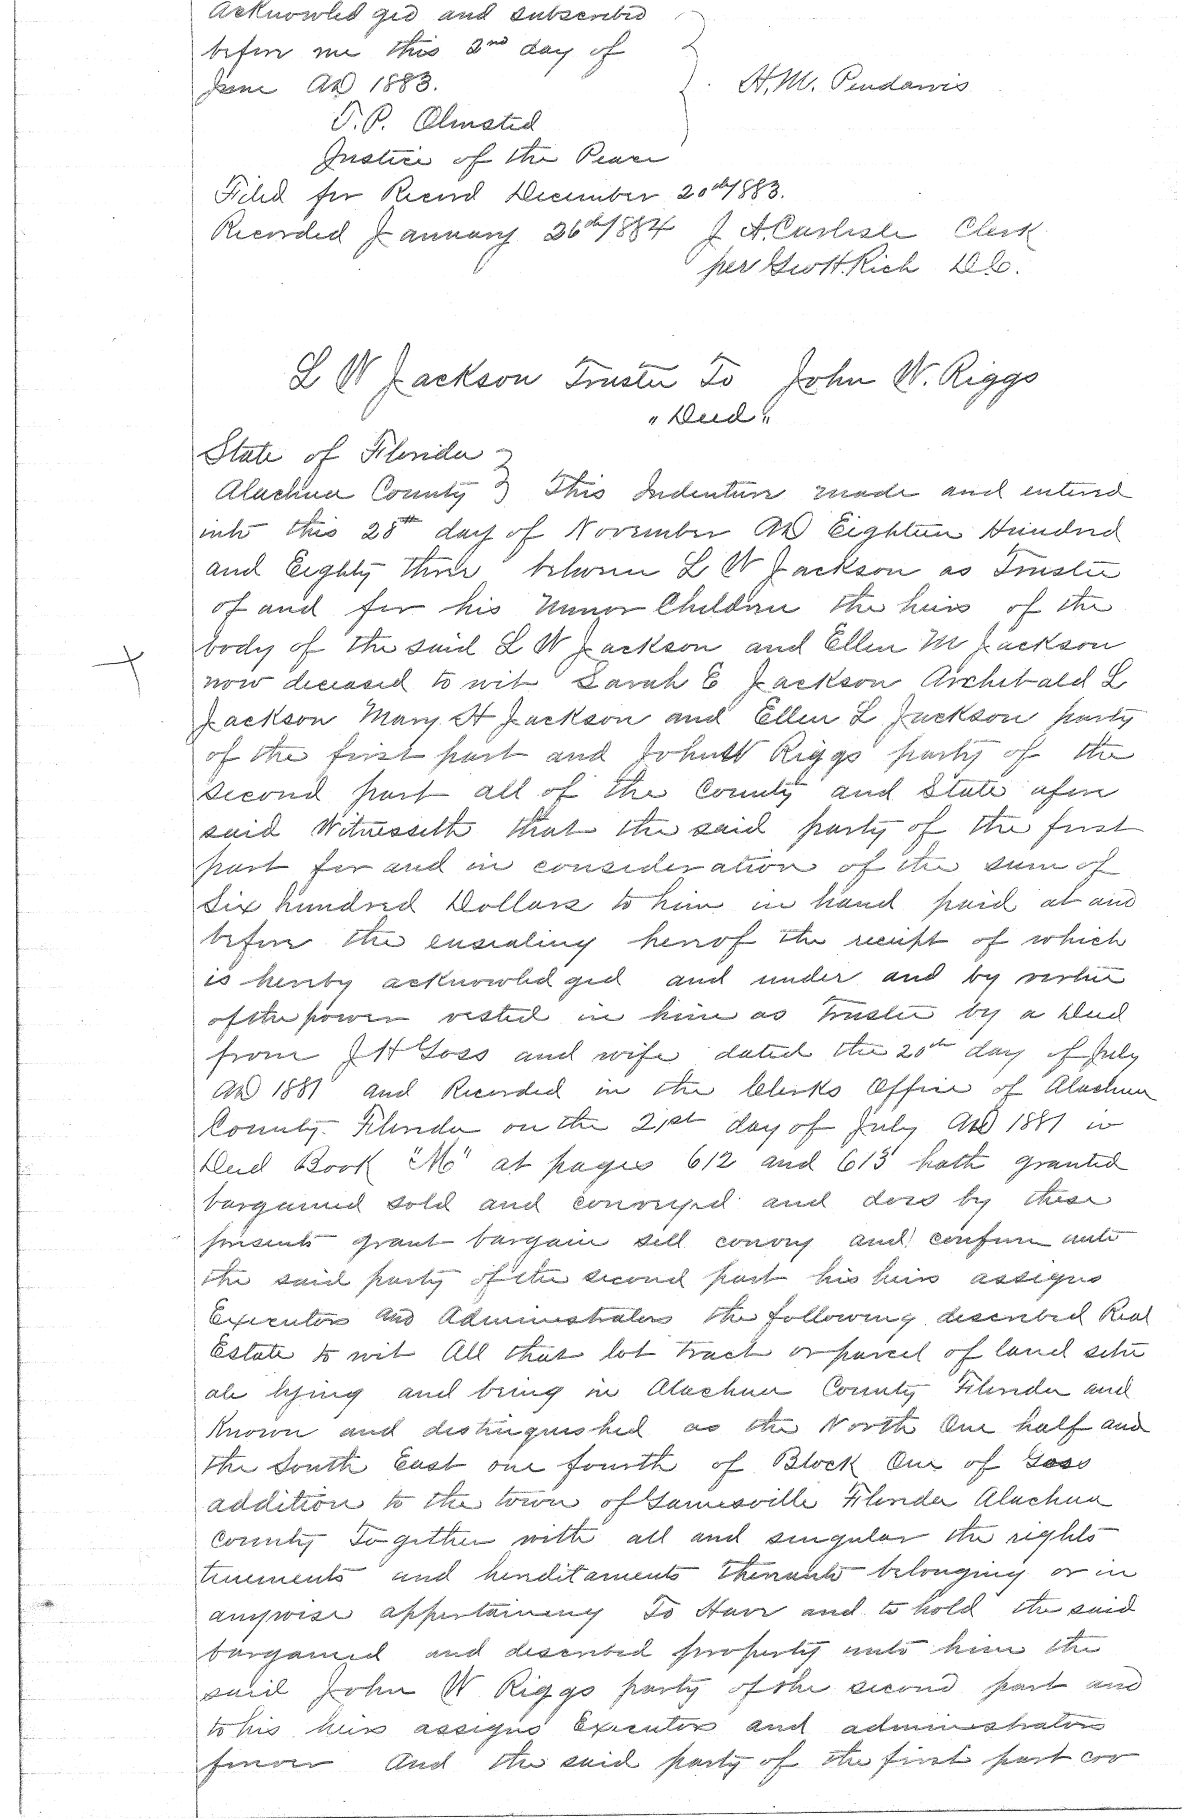 Acknowledged and subscribed
before me this 2nd day of
June AD 1883. H. M. Pendarvis
T. P. Olmsted
Justice of the Peace
Filed for Record December 20th 1883.
Recorded January 26th 1884 J A. Carlisle Clerk
per Geo H. Rich D.C.
L W Jackson Trustee To John W. Riggs
"Deed"
State of Florida
Alachua County } This Indenture made and entered
into this 28th day of November AD Eighteen Hundred
and Eighty three between L W Jackson as Trustee
of and for his Minor Children the heirs of the
body of the said L W Jackson and Ellen M Jackson
now deceased to wit Sarah E Jackson Archibald L
Jackson Mary H Jackson and Ellen L Jackson party
of the first part and John W Riggs party of the
second part all of the County and State afore
said Witnesseth that the said party of the first
part for and in consideration of the sum of
Six hundred Dollars to him in hand paid at and
before the ensealing hereof the receipt of which
is hereby acknowledged and under and by virtue
of the power vested in him as Trustee by a Deed
from J H Goss and wife dated the 20th day of July
AD 1881 and Recorded in the Clerks Office of Alachua
County Florida on the 21st day of July AD 1881 in
Deed Book "M" at pages 612 and 613 hath granted
bargained sold and conveyed and does by these
presents grant bargain sell convey and confirm unto
the said party of the second part his heirs assigns
Executors and Administrators the following described Real
Estate to wit All that lot tract or parcel of land situ
ate lying and being in Alachua County Florida and
Known and distinguished as the North One half and
the South East one fourth of Block One of Goss
addition to the town of Gainesville Florida Alachua
County Together with all and singular the rights
tenements and hereditaments thereunto belonging or in
anywise appertaining To Have and to hold the said
bargained and described property unto him the
said John W Riggs party of the second part and
to his heirs assigns Executors and administrators
forever And the said party of the first part cov